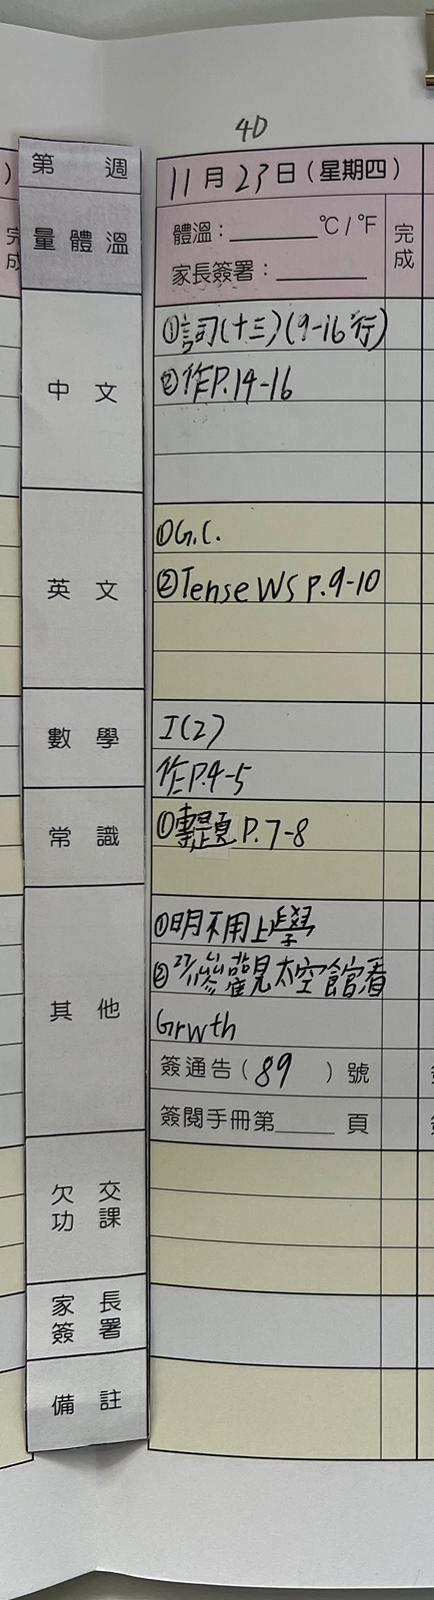 4D
第 週
11月23日(星期四)
量體溫
體溫:________°C/°F
完成
家長簽署:________
中 文
①詞(十三)(9-16行)
②作P.14-16
英 文
①G.C.
②Tense WS P.9-10
數 學
I(2)
作P.4-5
常 識
①專題P.7-8
其 他
①明不用上學
②27/11參觀太空館看
Grwth
簽通告(89)號
簽閱手冊第____頁
欠 交
功 課
家 長
簽 署
備 註